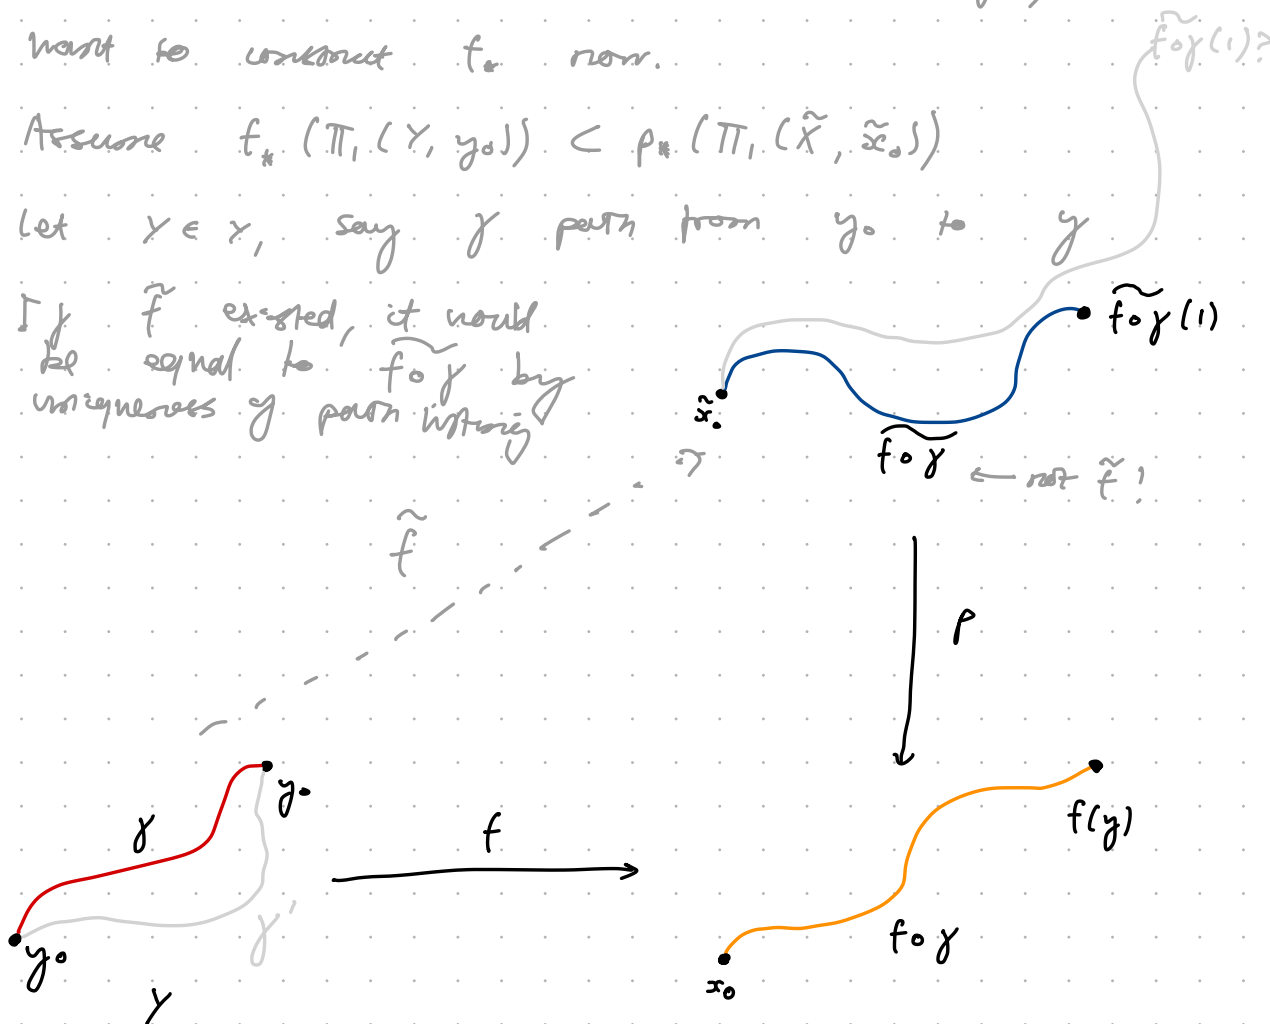 want to construct f_* now.
Assume f_* (π_1 (Y, y_0)) ⊂ p_* (π_1 (X̃, x̃_0))
Let y ∈ Y, say γ path from y_0 to y
If f̃ existed, it would
be equal to \widetilde{f∘γ} by
uniqueness of path lifting
\widetilde{f∘γ}(1)?
\widetilde{f∘γ}(1)
x̃_0
\widetilde{f∘γ}
← not f̃!
f̃
p
γ
y_0
f
f(y)
γ'
f∘γ
y_0
x_0
Y